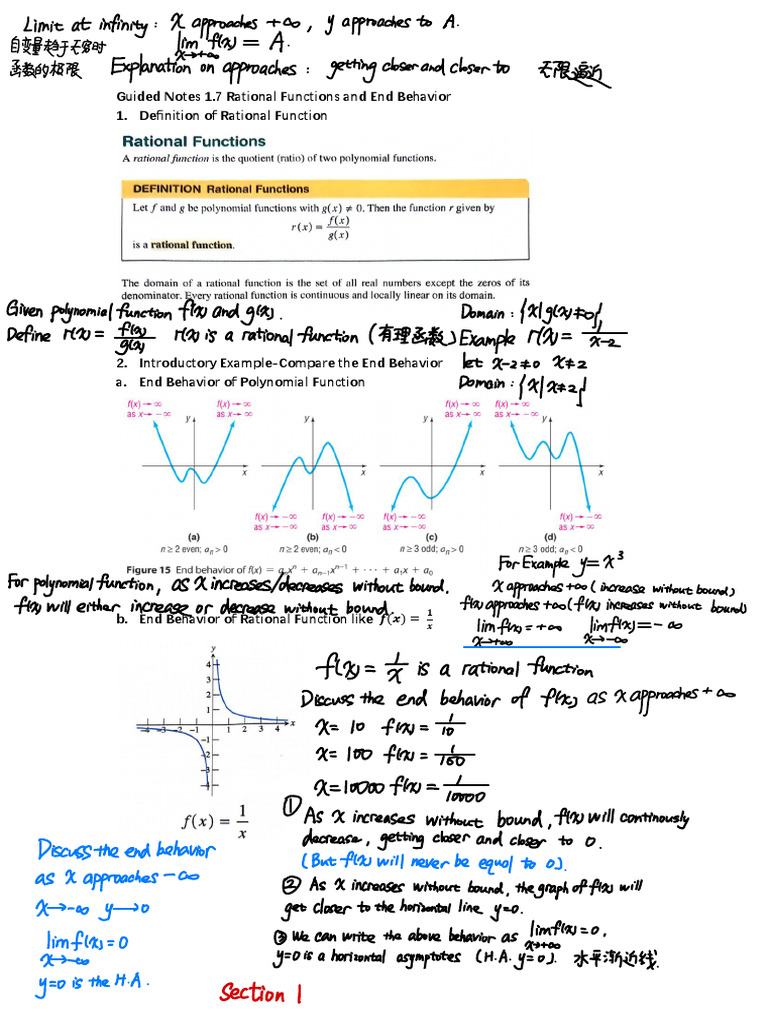 Limit at infinity: x approaches +∞, y approaches to A.
自变量趋于无穷时
lim f(x) = A.
x→+∞
函数的极限
Explanation on approaches: getting closer and closer to 无限逼近
Guided Notes 1.7 Rational Functions and End Behavior
1. Definition of Rational Function
Rational Functions
A rational function is the quotient (ratio) of two polynomial functions.
DEFINITION Rational Functions
Let f and g be polynomial functions with g(x) ≠ 0. Then the function r given by
r(x) = f(x)/g(x)
is a rational function.
The domain of a rational function is the set of all real numbers except the zeros of its
denominator. Every rational function is continuous and locally linear on its domain.
Given polynomial function f(x) and g(x).
Define r(x) = f(x)/g(x) r(x) is a rational function (有理函数)
Domain: {x|g(x)≠0}
Example r(x) = 1/x-2
let x-2≠0 x≠2
Domain: {x|x≠2}
2. Introductory Example-Compare the End Behavior
a. End Behavior of Polynomial Function
f(x)→∞ f(x)→∞ f(x)→∞ f(x)→∞
as x→-∞ as x→∞ as x→∞ as x→-∞
y y y y
x x x x
f(x)→-∞ f(x)→-∞ f(x)→-∞ f(x)→-∞
as x→-∞ as x→∞ as x→-∞ as x→∞
(a) (b) (c) (d)
n≥2 even; aₙ>0 n≥2 even; aₙ<0 n≥3 odd; aₙ>0 n≥3 odd; aₙ<0
Figure 15 End behavior of f(x) = aₙxⁿ + aₙ₋₁xⁿ⁻¹ + ··· + a₁x + a₀
For polynomial function, as x increases/decreases without bound.
f(x) will either increase or decrease without bound.
For Example y=x³
x approaches +∞ (increase without bound)
f(x) approaches +∞ (f(x) increases without bound)
lim f(x)=+∞ lim f(x)=-∞
x→+∞ x→-∞
b. End Behavior of Rational Function like f(x) = 1/x
y
4
3
2
1
-4 -3 -2 -1 1 2 3 4 x
-1
-2
-3
-4
f(x) = 1/x
f(x) = 1/x is a rational function
Discuss the end behavior of f(x) as x approaches +∞
x= 10 f(x) = 1/10
x= 100 f(x) = 1/100
x=10000 f(x) = 1/10000
① As x increases without bound, f(x) will continously
decrease, getting closer and closer to 0.
(But f(x) will never be equal to 0).
② As x increases without bound, the graph of f(x) will
get closer to the horizontal line y=0.
③ We can write the above behavior as lim f(x)=0,
x→+∞
y=0 is a horizontal asymptotes (H.A. y=0). 水平渐近线.
Discuss the end behavior
as x approaches -∞
x→-∞ y→0
lim f(x)=0
x→-∞
y=0 is the H.A.
Section 1